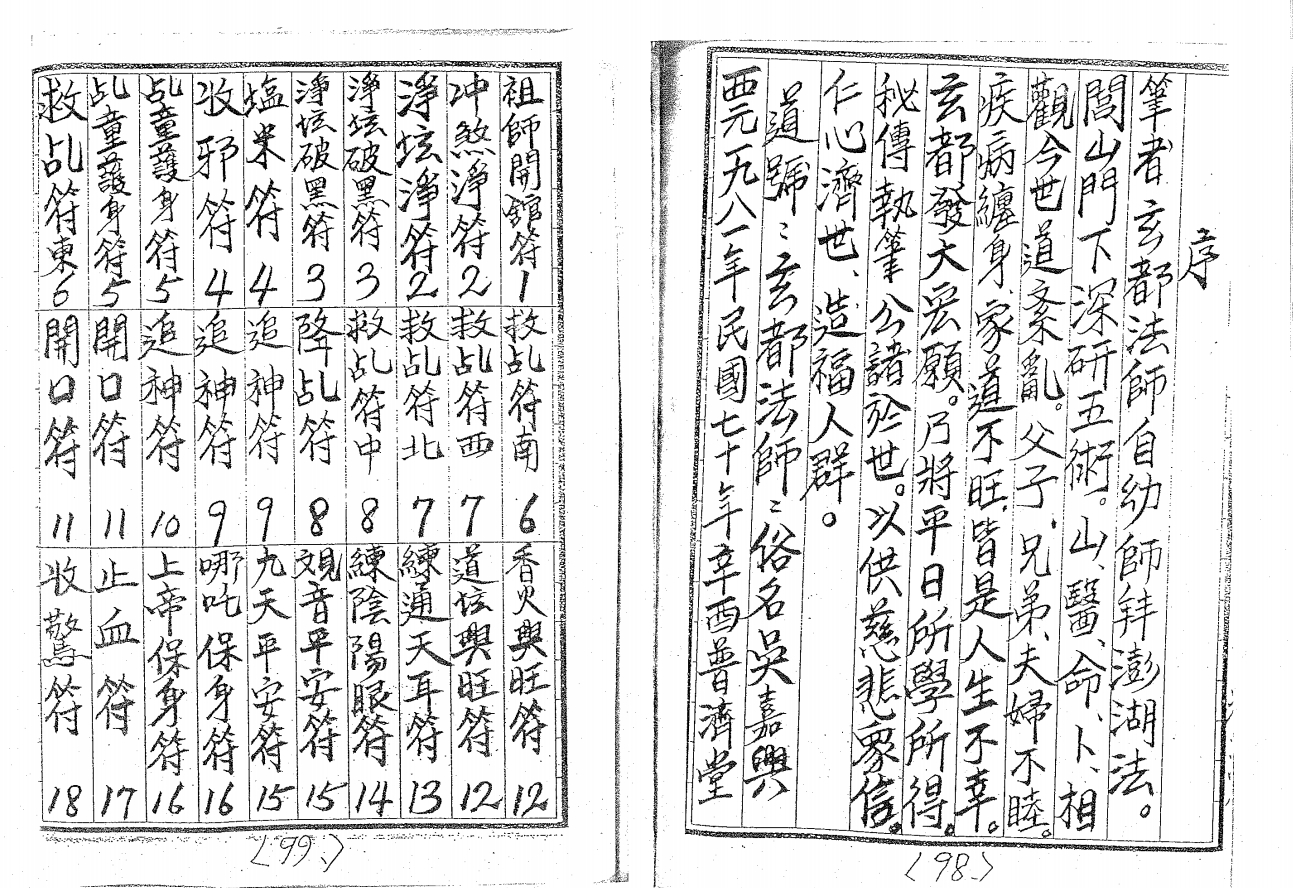 序
筆者玄都法師自幼師拜澎湖法。
閭山門下深研五術。山、醫、命、卜、相
觀今世道紊亂。父子、兄弟、夫婦不睦。
疾病纏身、家道不旺、皆是人生不幸。
玄都發大宏願。乃將平日所學所得。
秘傳執筆公諸於世。以供慈悲眾信。
仁心濟世、造福人群。
道號:玄都法師:俗名吳嘉興
西元一九八一年民國七十年辛酉普濟堂
<98.>
祖師開館符1
冲煞淨符2
淨坛淨符2
淨坛破黑符3
淨坛破黑符3
塩米符4
收邪符4
乩童護身符5
乩童護身符5
救乩符東6
救乩符南6
救乩符西7
救乩符北7
救乩符中8
降乩符8
追神符9
追神符9
追神符10
開口符11
開口符11
香火興旺符12
道坛興旺符12
練通天耳符13
練陰陽眼符14
观音平安符15
九天平安符15
哪吒保身符16
上帝保身符16
止血符17
收驚符18
<99.>